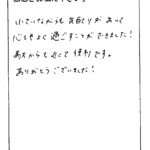 小さいながらも気配りがあって
心地よく過ごすことができました!
駅からも近くて便利です。
ありがとうございました!